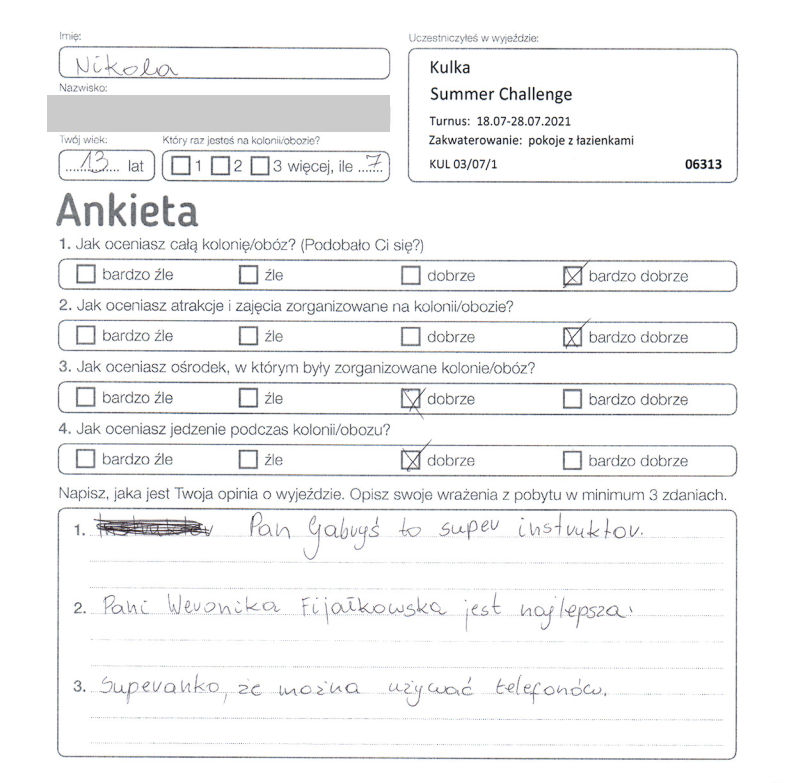 Imię:
Nikola
Nazwisko:
Twój wiek:
13 lat
Który raz jesteś na kolonii/obozie?
1 2 3 więcej, ile 7
Uczestniczyłeś w wyjeździe:
Kulka
Summer Challenge
Turnus: 18.07-28.07.2021
Zakwaterowanie: pokoje z łazienkami
KUL 03/07/1 06313
Ankieta
1. Jak oceniasz całą kolonię/obóz? (Podobało Ci się?)
bardzo źle źle dobrze bardzo dobrze
2. Jak oceniasz atrakcje i zajęcia zorganizowane na kolonii/obozie?
bardzo źle źle dobrze bardzo dobrze
3. Jak oceniasz ośrodek, w którym były zorganizowane kolonie/obóz?
bardzo źle źle dobrze bardzo dobrze
4. Jak oceniasz jedzenie podczas kolonii/obozu?
bardzo źle źle dobrze bardzo dobrze
Napisz, jaka jest Twoja opinia o wyjeździe. Opisz swoje wrażenia z pobytu w minimum 3 zdaniach.
1. Pan Gabryś to super instruktor.
2. Pani Weronika Fijałkowska jest najlepsza.
3. Superanko, że można używać telefonów.